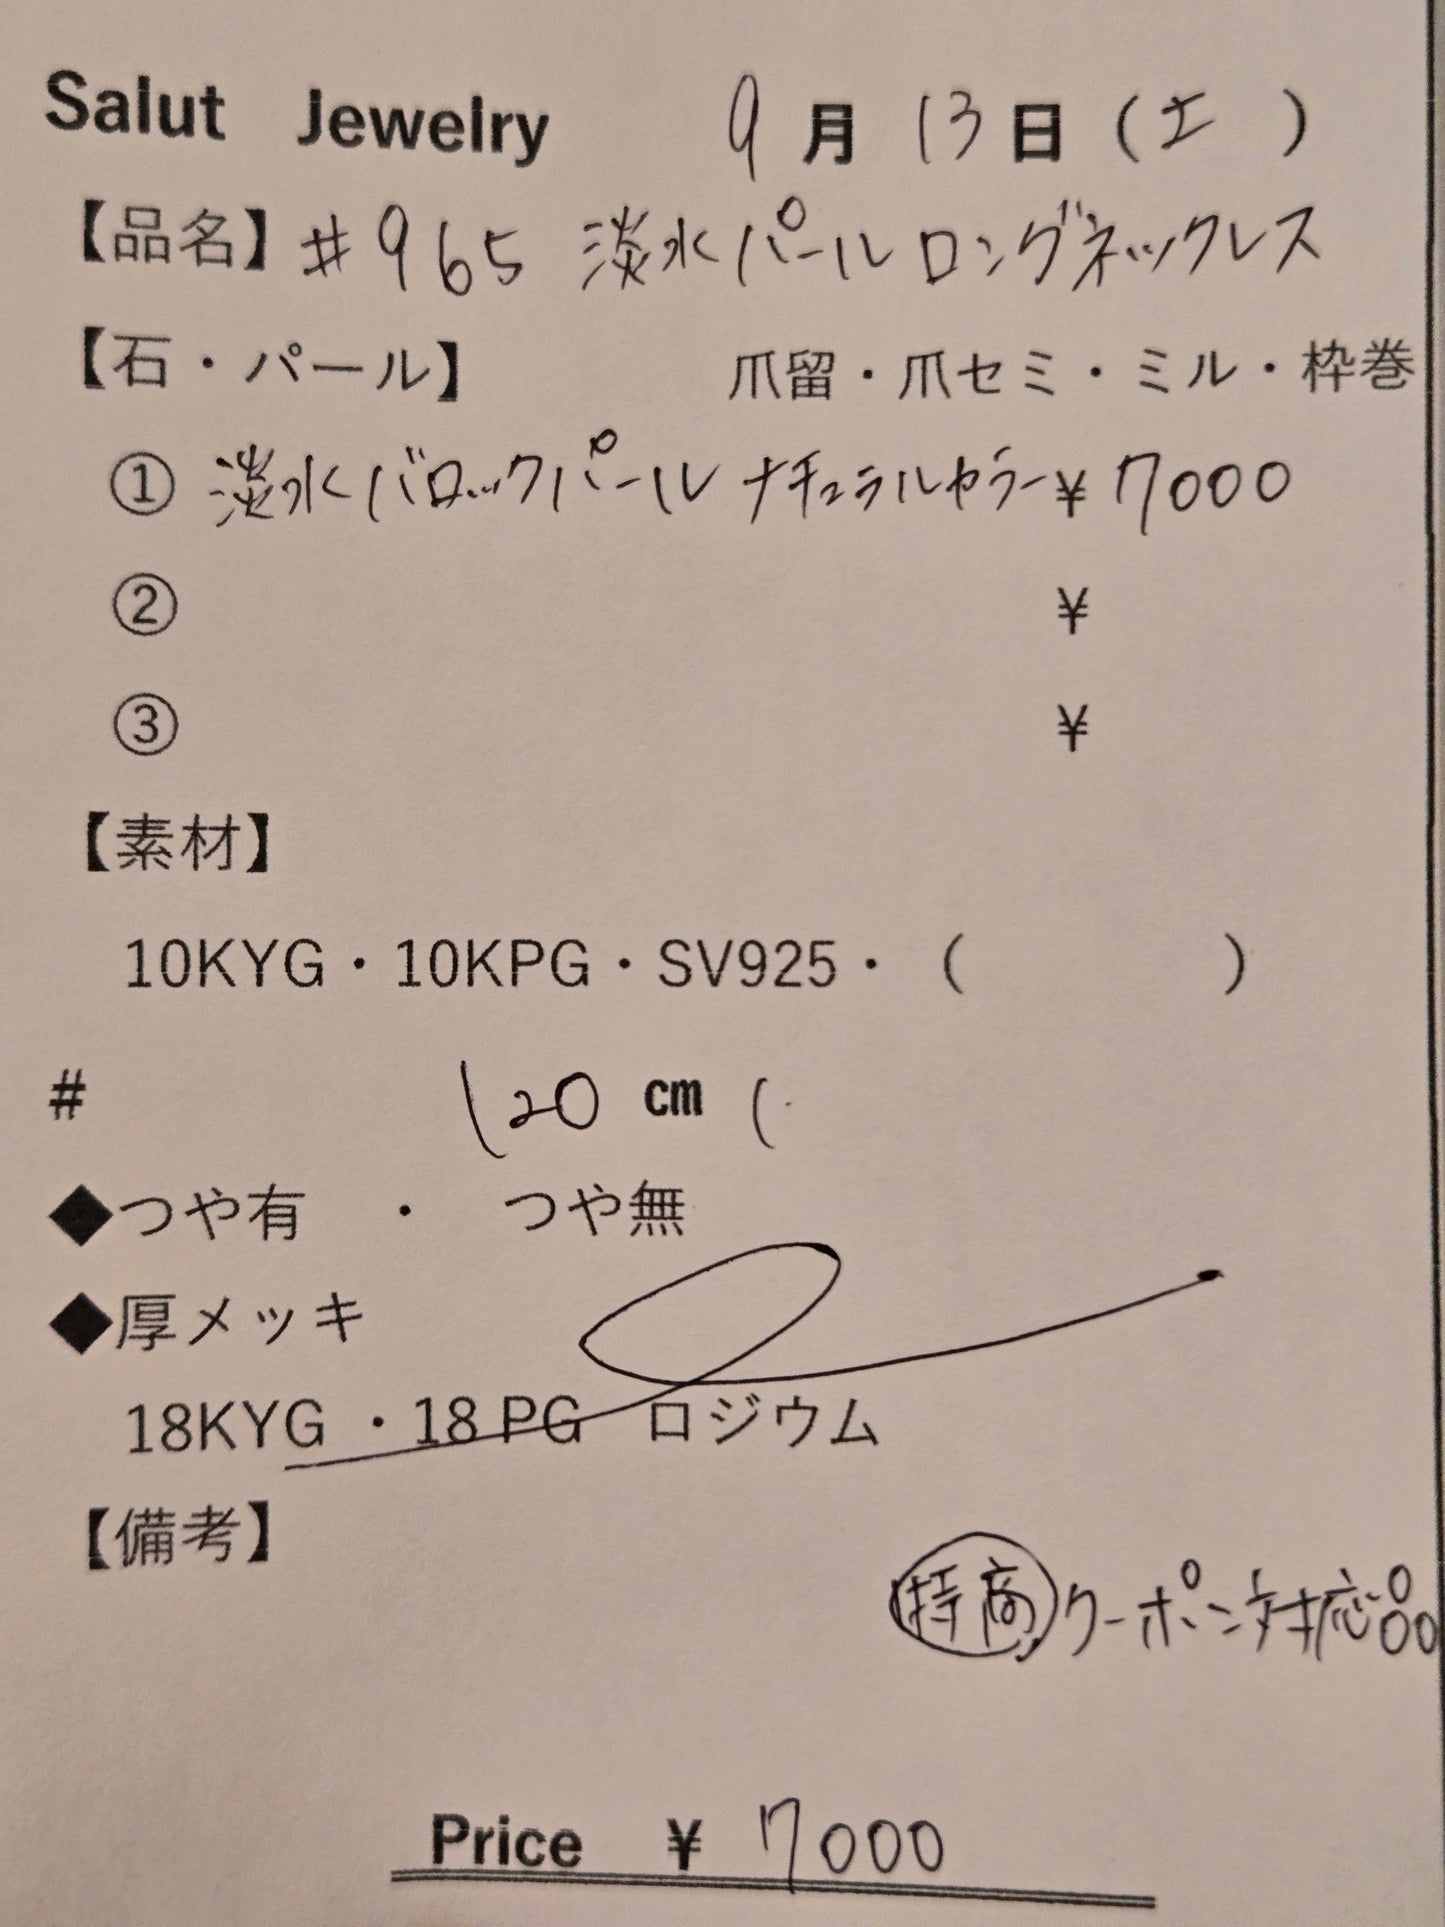 Salut Jewelry 9月13日(土)
【品名】#965 淡水パールロングネックレス
【石・パール】 爪留・爪セミ・ミル・枠巻
① 淡水バロックパール ナチュラルカラー ¥7000
② ¥
③ ¥
【素材】
10KYG・10KPG・SV925・( )
# 120 cm (
◆つや有 ・ つや無
◆厚メッキ
18KYG ・18 PG ロジウム
【備考】
特商 クーポン対応品
Price ¥ 7000